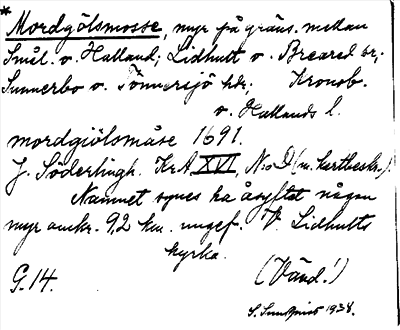 * Mordgölsmosse, myr på gräns. mellan
Smål. o. Halland; Lidhult o. Breared sr;
Sunnerbo o. Tönnersjö hdr; Kronob.
o. Hallands l.
mordgiölsmåse 1691.
J. Söderlingh. KrA XVI, N:o D (m. kartbeskr.).
Namnet synes ha åsyftat någon
myr omkr. 9,2 km. ungef. V. Lidhults
kyrka.
G. 14. (Vänd!)
S. Sundqvist 1938.